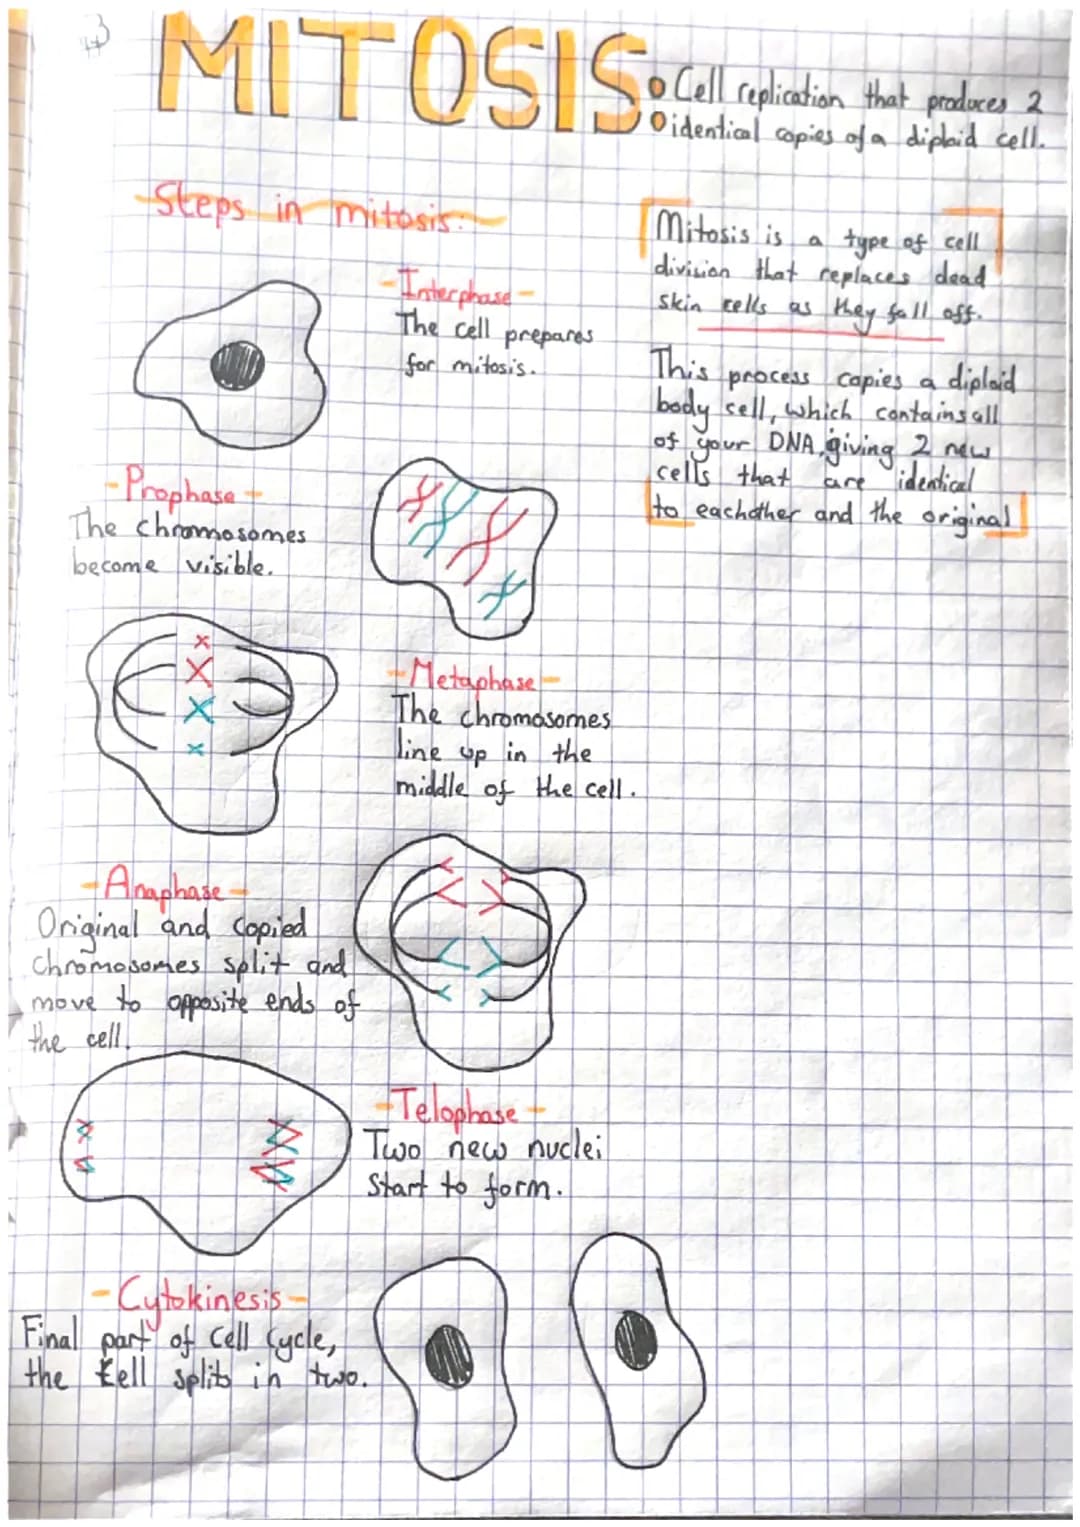 MITOSIS:
Cell replication that produces 2
identical copies of a diploid cell.
Steps in mitosis:
Mitosis is a type of cell
division that replaces dead
skin cells as they fall off.
This process copies a diploid
body cell, which contains all
of your DNA, giving 2 new
cells that are identical
to eachother and the original
-Interphase-
The cell prepares
for mitosis.
-Prophase-
The chromosomes
become visible.
-Metaphase-
The chromosomes
line up in the
middle of the cell.
-Anaphase-
Original and copied
chromosomes split and
move to opposite ends of
the cell.
-Telophase-
Two new nuclei
start to form.
-Cytokinesis-
Final part of cell cycle,
the cell splits in two.